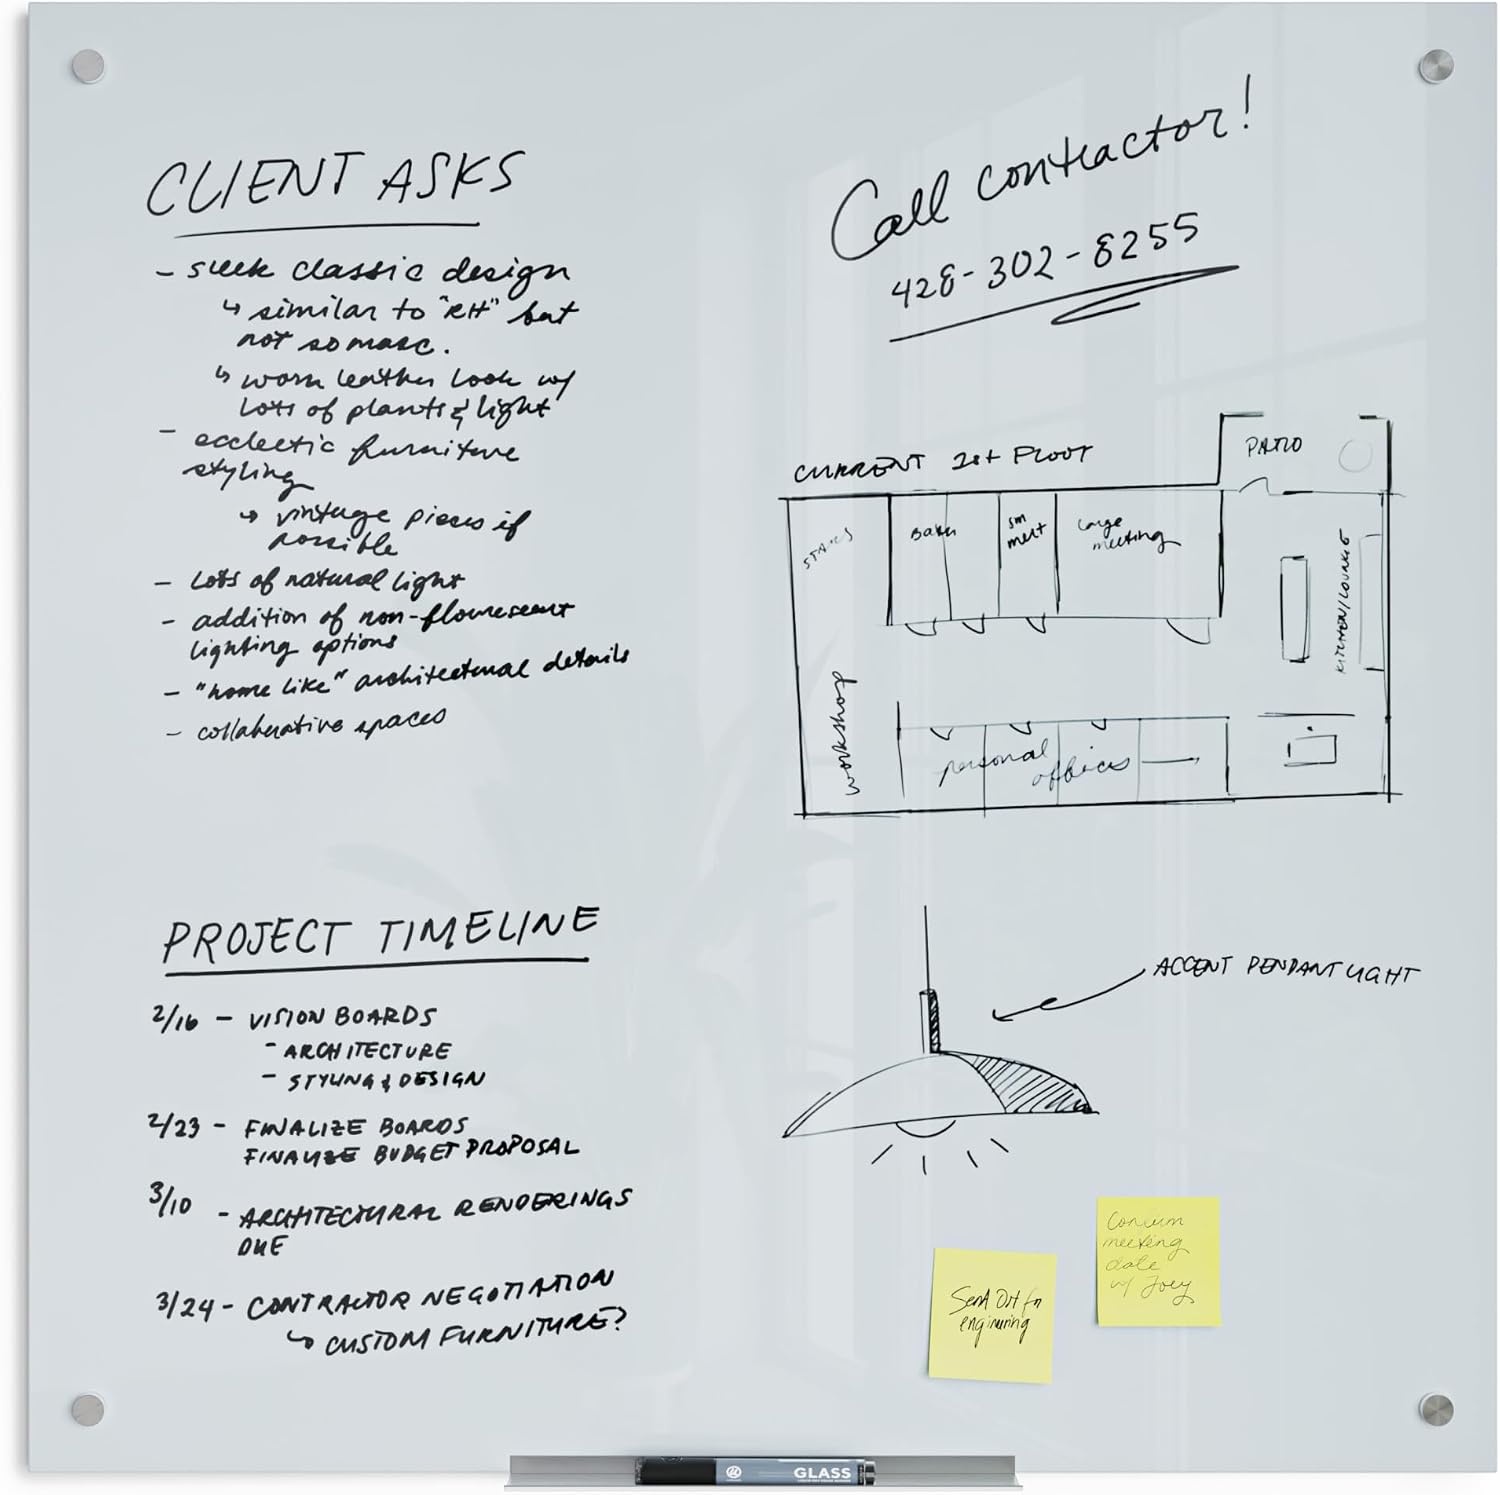 CLIENT ASKS
- sleek classic design
↳ similar to "RH" but
not so masc.
↳ worn leather look w/
lots of plants & light
- ecclectic furniture
styling
↳ vintage pieces if
possible
- lots of natural light
- addition of non-flourescent
lighting options
- "home like" architectural details
- collaborative spaces
PROJECT TIMELINE
2/16 - VISION BOARDS
- ARCHITECTURE
- STYLING & DESIGN
2/23 - FINALIZE BOARDS
FINALIZE BUDGET PROPOSAL
3/10 - ARCHITECTURAL RENDERINGS
DUE
3/24 - CONTRACTOR NEGOTIATION
↳ CUSTOM FURNITURE?
Call contractor!
428-302-8255
CURRENT 1st FLOOR
PATIO
STAIRS
Baths
sm
meet
large
meeting
KITCHEN/LOUNGE
workshop
personal
offices
ACCENT PENDANT LIGHT
Send Out for
engineering
Confirm
meeting
date
w/ Joey
GLASS